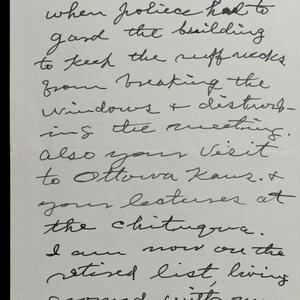 when poliece had to
gard the building
to keep the ruff necks
from breaking the
windows & disturb-
ing the meeting.
also your Visit
to Ottowa Kans. &
your lectures at
the chituqua.
I am now on the
retired list, living
around with our